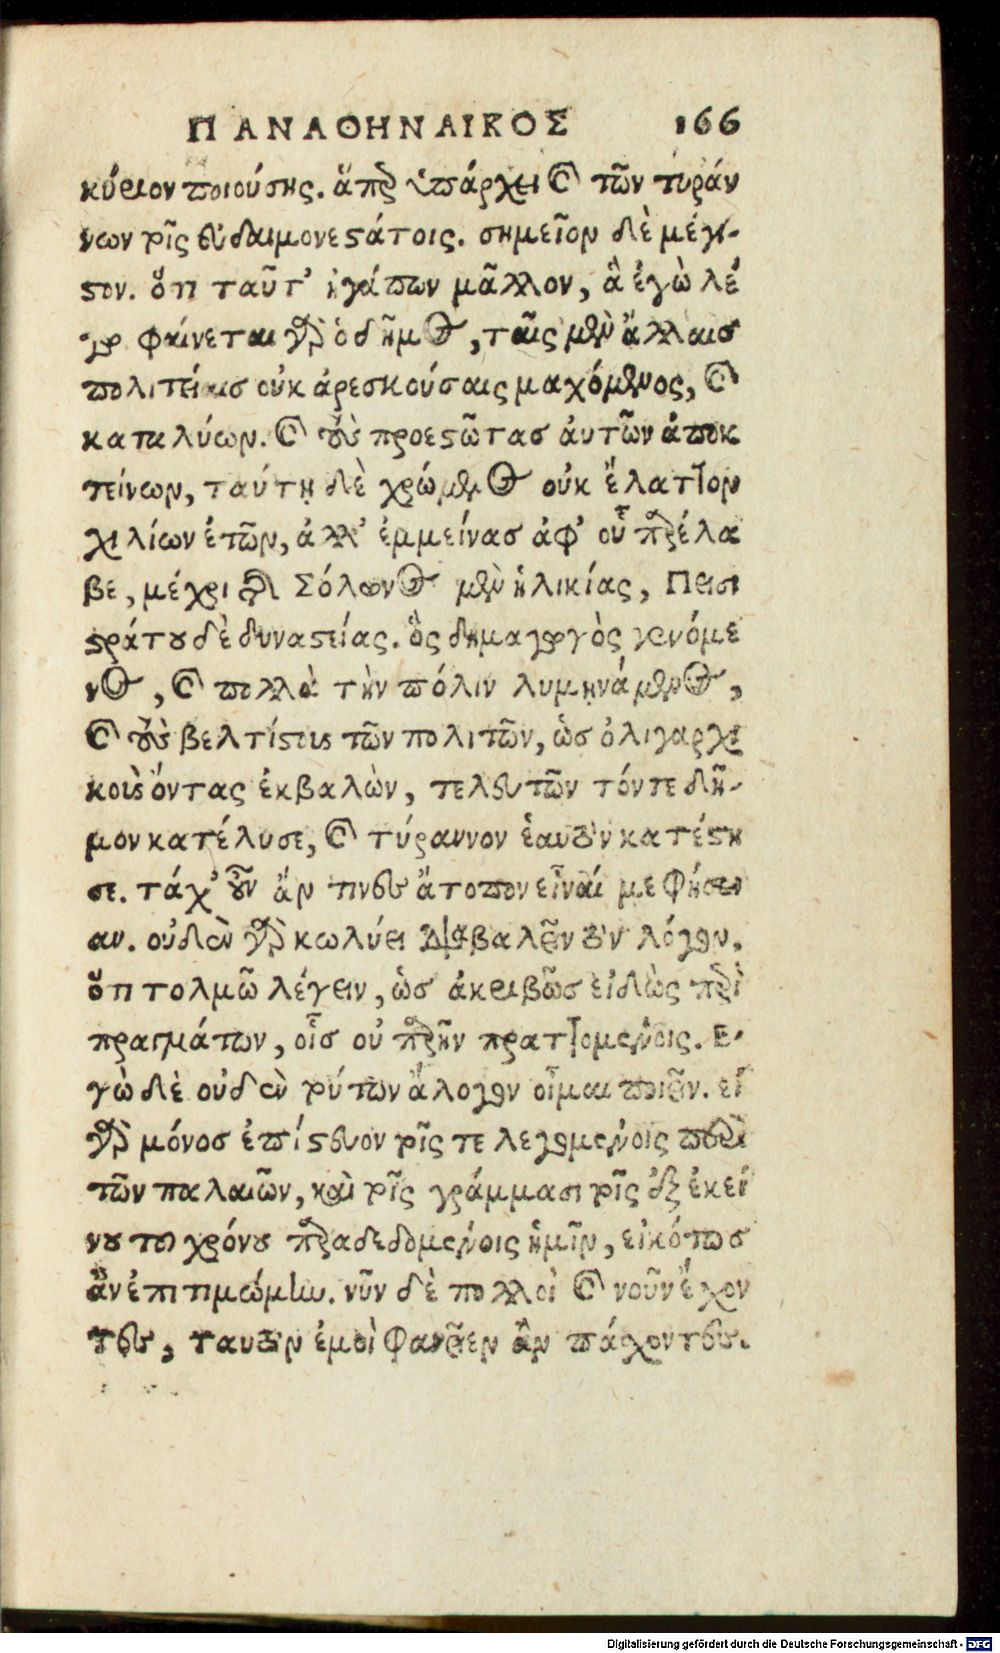 ΠΑΝΑΘΗΝΑΙΚΟΣ 166
κύριον ποιούσης. ἅπερ ὑπάρχει καὶ τῶν τυράν
νων τοῖς εὐδαιμονεστάτοις. σημεῖον δὲ μέγι-
στον. ὅτι ταῦτ’ ἠγάπων μᾶλλον, ἃ ἐγὼ λέ
γω φαίνεται γὰρ ὁ δῆμος, ταῖς μὲν ἄλλαισ
πολιτείαισ οὐκ ἀρεσκούσαις μαχόμενος, καὶ
καταλύων. καὶ τοὺς προεστῶτασ ἀυτῶν ἀποκ
τείνων, ταύτῃ δὲ χρώμενος οὐκ ἔλαττον
χιλίων ἐτῶν, ἀλλ’ ἐμμείνασ ἀφ’ οὗ παρέλα
βε, μέχρι τῆς Σόλωνος μὲν ἡλικίας, Πεισι
στράτου δὲ δυναστείας. ὃς δημαγωγὸς γενόμε
νος, καὶ πολλὰ τὴν πόλιν λυμηνάμενος,
καὶ τοὺς βελτίστους τῶν πολιτῶν, ὡσ ὀλιγαρχι
κοὺς ὄντας ἐκβαλὼν, τελευτῶν τόν τε δῆ-
μον κατέλυσε, καὶ τύραννον ἑαυτὸν κατέστη
σε. τάχ’ οὖν ἄν τινες ἄτοπον εἶναί με φήσει
αν. οὐδὲν γὰρ κωλύει διαβαλεῖν τὸν λόγον.
ὅτι τολμῶ λέγειν, ὡσ ἀκριβῶσ εἰδὼς περὶ
πραγμάτων, οἷσ οὐ παρῆν πραττομένοις. Ε-
γὼ δὲ οὐδὲν τούτων ἄλογον οἶμαι ποιεῖν. εἰ
γὰρ μόνοσ ἐπίστευον τοῖς τε λεγομένοις περὶ
τῶν παλαιῶν, καὶ τοῖς γράμμασι τοῖς ἐξ ἐκεί
νου του χρόνου παραδεδομένοις ἡμῖν, εἰκότωσ
ἂν ἐπιτιμώμην. νῦν δὲ πολλοὶ καὶ νοῦν ἔχον
τες, ταυτὸν ἐμοὶ φανεῖεν ἂν πάσχοντες.
Digitalisierung gefördert durch die Deutsche Forschungsgemeinschaft - DFG